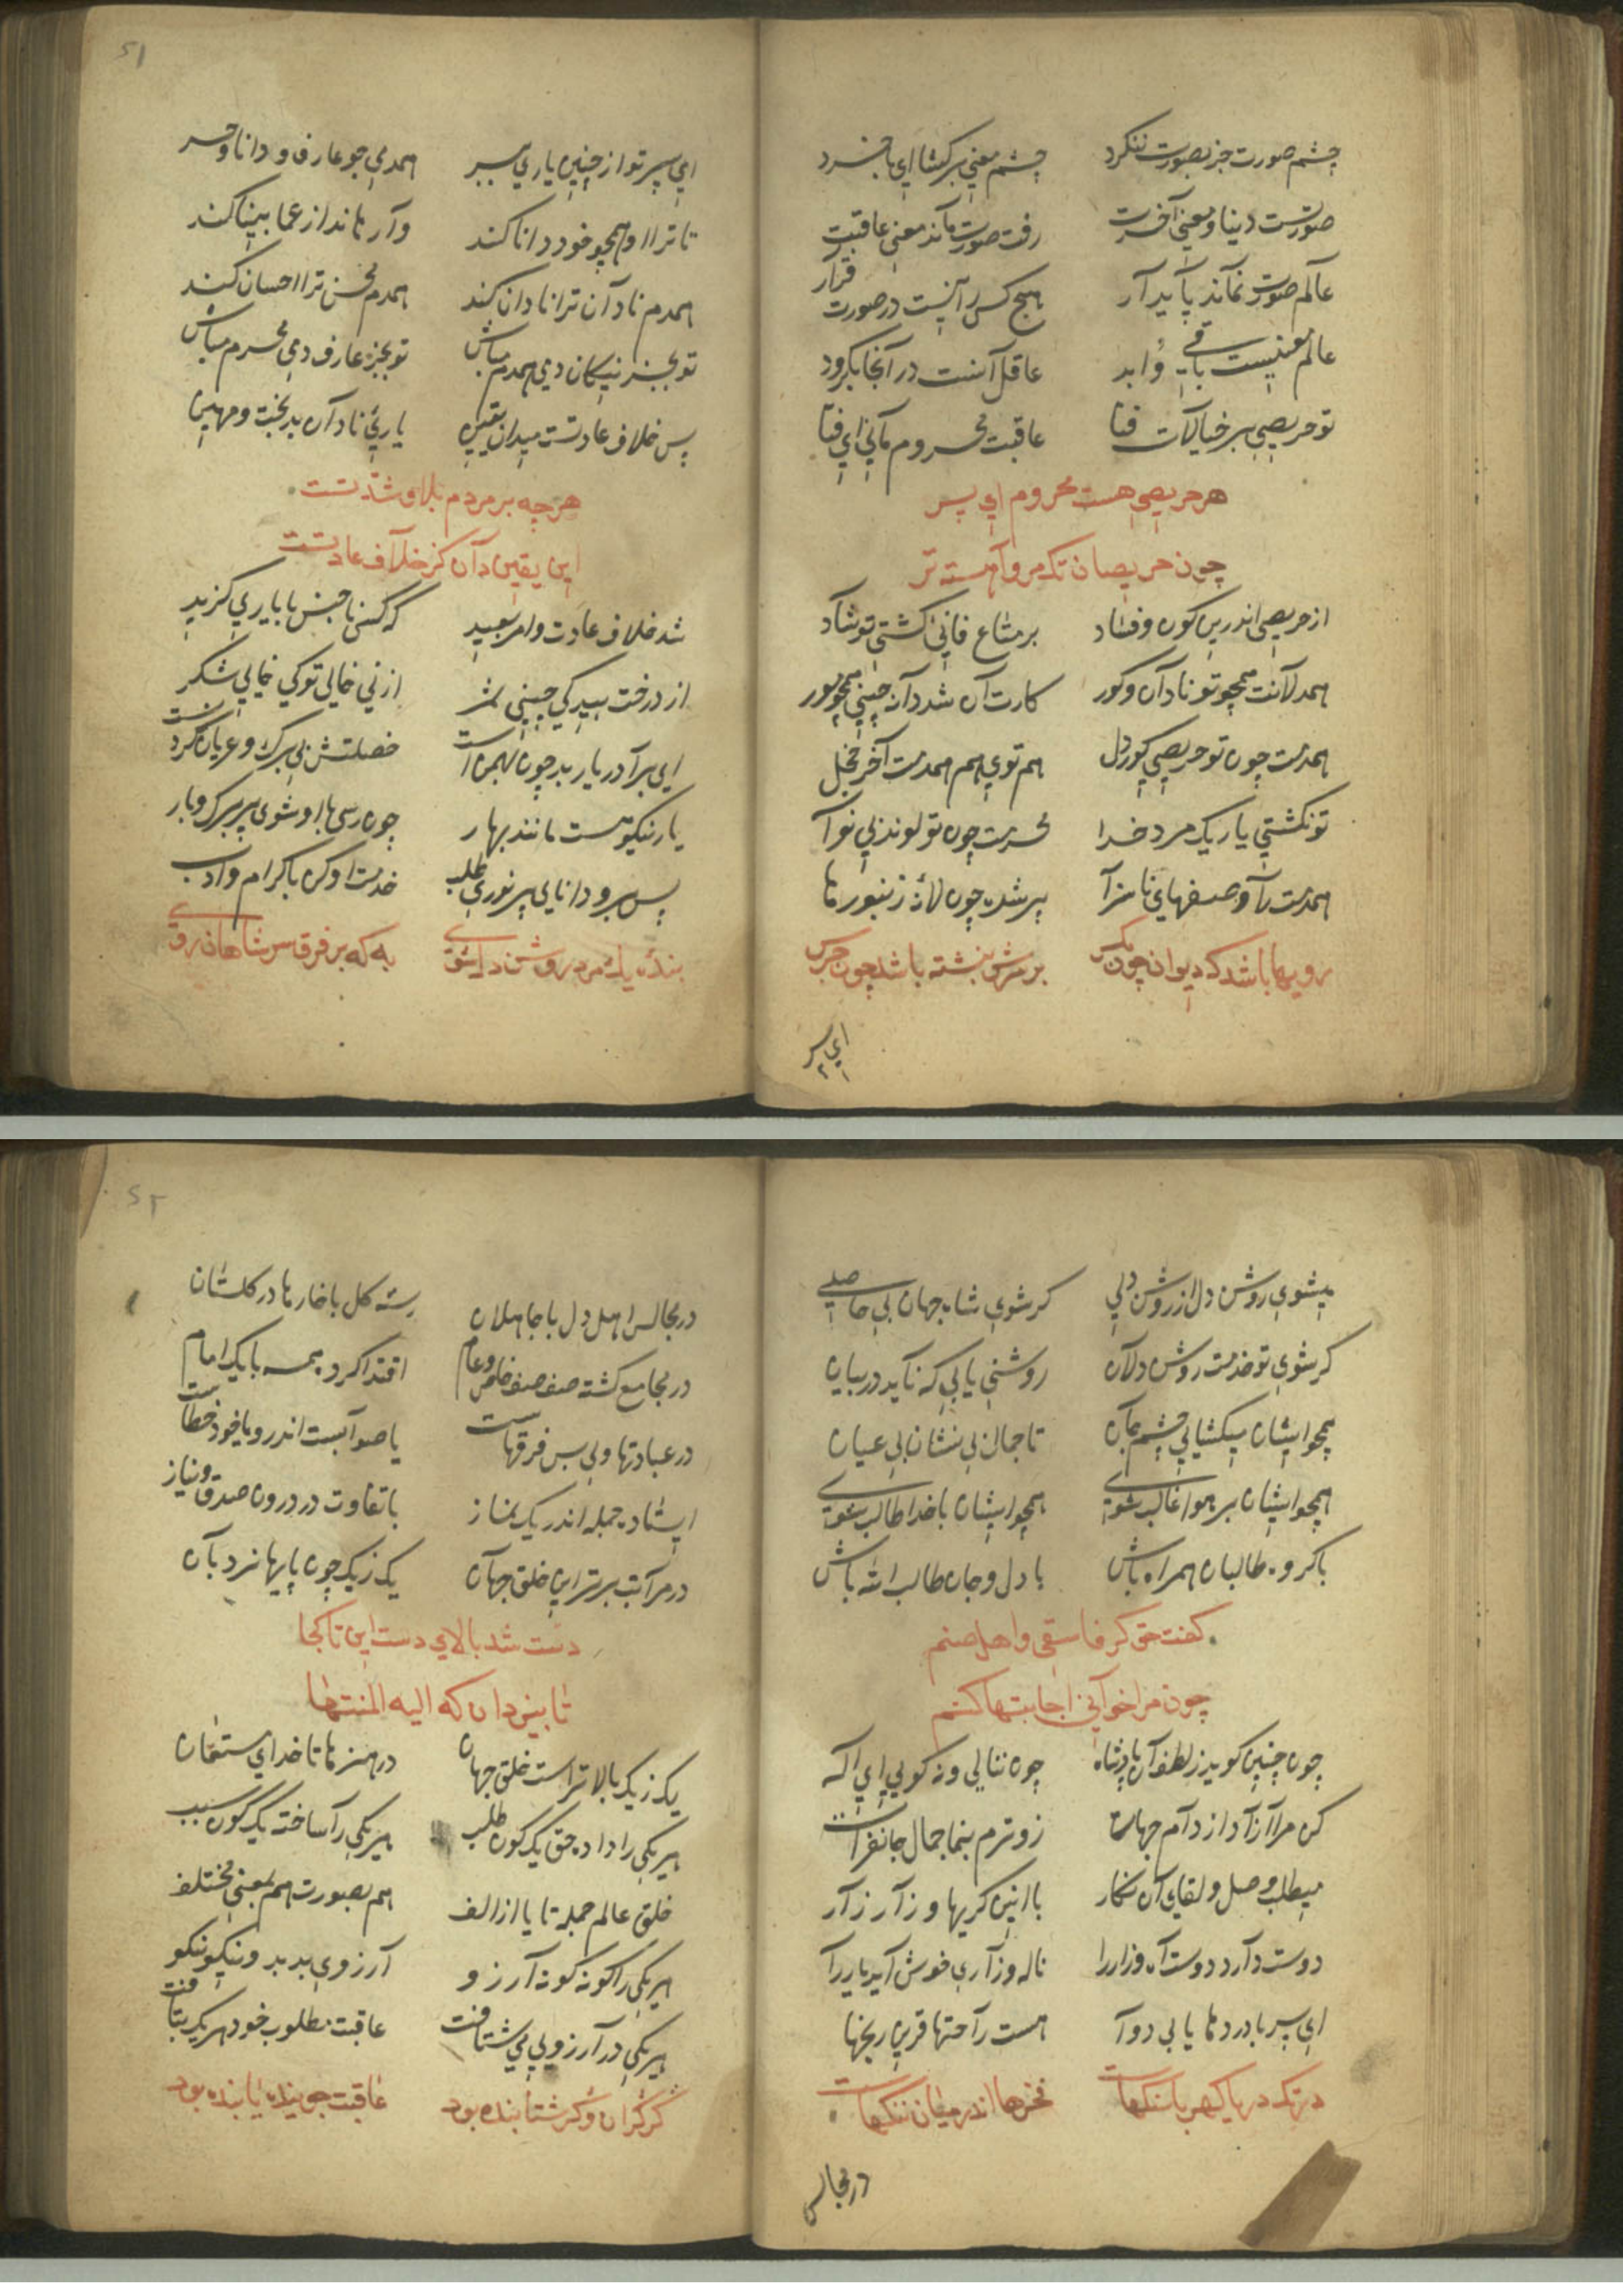 چشم صورت جز بصورت ننکرد چشم معنی برکشا ای با خرد
صورتست دنیا و معنی آخرت رفت صورت ماند معنی عاقبت
عالم صورت نماند پایدار هیچ کس را نیست در صورت قرار
عالم معنیست باقی و ابد عاقل آنست در آنجا بکرود
تو حریصی بر خیالات فنا عاقبت محروم مانی ای فتا
هر حریصی هست محروم ای پسر
چون حریصان تک مرو آهسته تر
از حریصی اندرین کون و فساد بر متاع فانئ کشتی تو شاد
همدلانت همچو تو نادان و کور کارت آن شد دانه چینی همچو مور
همدمت چون تو حریصی کوردل هم توی هم همدمت آخر خجل
تو نکشتی یار یک مرد خدا محرمت چون تو لوندی بی نوا
همدمت را وصفهای ناسزا پر شده چون لانه زنبورها
رویها باشد که دیوان چون مکس بر سرش بنشسته باشد چون جرس
ای پسر
51
ای پسر تو از چنین یاری ببر همدمی جو عارف و دانا و حر
تا ترا او همچو خود دانا کند وارهاند از عما بینا کند
همدم نادان ترا نادان کند همدم محسن ترا احسان کند
تو بجز نیکان دمی همدم مباش تو بجز عارف دمی محرم مباش
پس خلاف عادتست میدان یقین یاریٔ نادان بدبخت و مهین
هر چه بر مردم بلا و شدتست
این یقین دان کز خلاف عادتست
شد خلاف عادت و امر بعید که کسی ناجنس با یاری کزید
از درخت بید کی چینی ثمر از نی خالی تو کی خایی شکر
ای برادر یار بد چون بهمن است خصلتش بی برک و عریان کردنست
یار نیکو هست مانند بهار چون رسی با او شوی پر برک و بار
پس برو دانایی پر نوری طلب خدمت او کن باکرام و ادب
بندهٔ یک مرد روشن دل شوی به که بر فرق سر شاهان روی
میشوی روشن دل از روشن دلی کر شوی شاه جهان بی حاصلی
کر شوی تو خدمت روشن دلان روشنی یابی که ناید در بیان
همچو ایشان میکشایی چشم جان تا جمال بی نشان بی عیان
همچو ایشان بر هوا غالب شوی همچو ایشان با خدا طالب شوی
با کروه طالبان همراه باش با دل و جان طالب الله باش
کفت حق کر فاسقی و اهل صنم
چون مرا خوانی اجابتها کنم
چون چنین کوید ز لطف آن پادشاه چون ننالی و نه کویی ای اله
کن مرا آزاد از دام جهان زوترم بنما جمال جانفزات
میطلب وصل و لقای آن نکار با انین کریها و زار زار
دوست دارد دوست آه و زار را ناله و زاری خوش آید یار را
ای پسر با دردها یابی دوا هست راحتها قرین رنجها
در تک دریا کهر با سنکهاست فخرها اندر میان ننکهاست
در مجالس
52
در مجالس اهل دل با جاهلان رسته کل با خارها در کلستان
در مجامع کشته صف صف خاص و عام اقتدا کرده همه با یک امام
در عبادتها ولی بس فرقهاست یا صوابست اندرو یا خود خطاست
ایستاده جمله اندر یک نماز با تفاوت در درون صدق و نیاز
در مراتب برتر این خلق جهان یک ز یک چون پایها نردبان
دست شد بالای دست این تا کجا
تا بیزدان که الیه المنتها
یک ز یک بالاترست خلق جهان در هنرها تا خدای مستعان
هر یکی را داده حق یک کون طلب هر یکی را ساخته یک کون سبب
خلق عالم جمله تا یا از الف هم بصورت هم بمعنی مختلف
هر یکی را کونه کونه آرزو آرزوی بد بد و نیکو نکو
هر یکی در آرزویی می شتافت عاقبت مطلوب خود هر یک بیافت
کر کران و کر شتابنده بود عاقبت جوینده یابنده بود